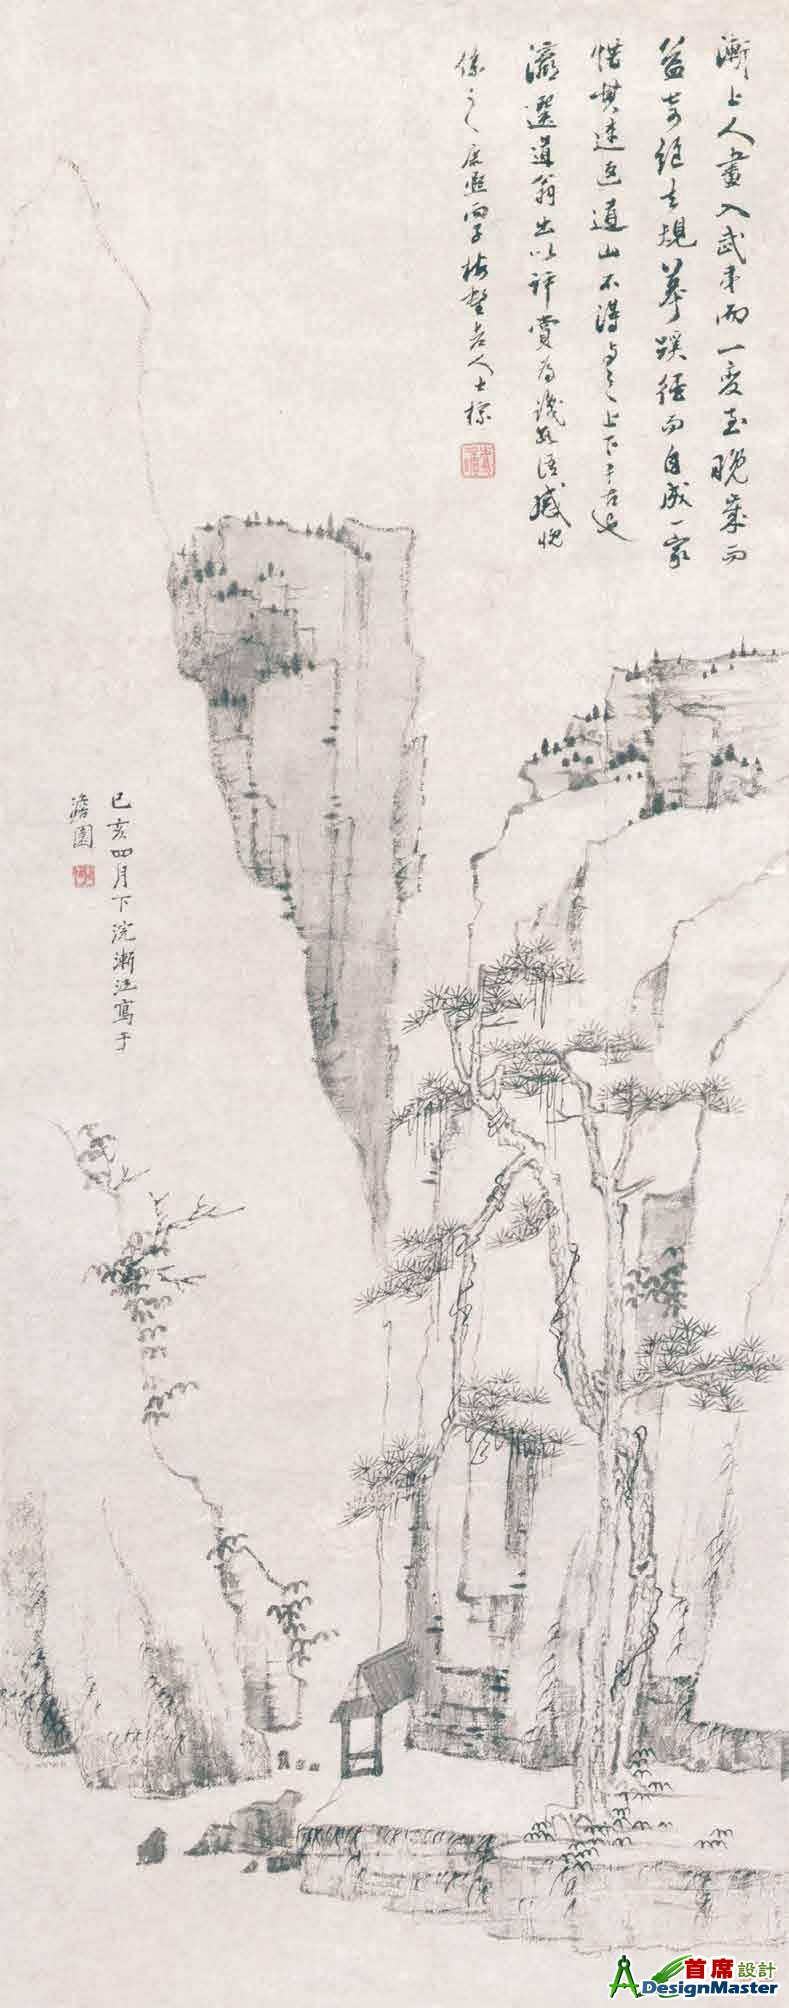 漸上人畫入武夷而一變至晚歲而
益奇絕去規摹蹊徑而自成一家
惜其速返道山不得與之上下千古也
瀛選道翁出以評賞為識數語感愧
係之康熙丙子梅壑老人士標
己亥四月下浣漸江寫于
澹園
首席設計
ADesignMaster